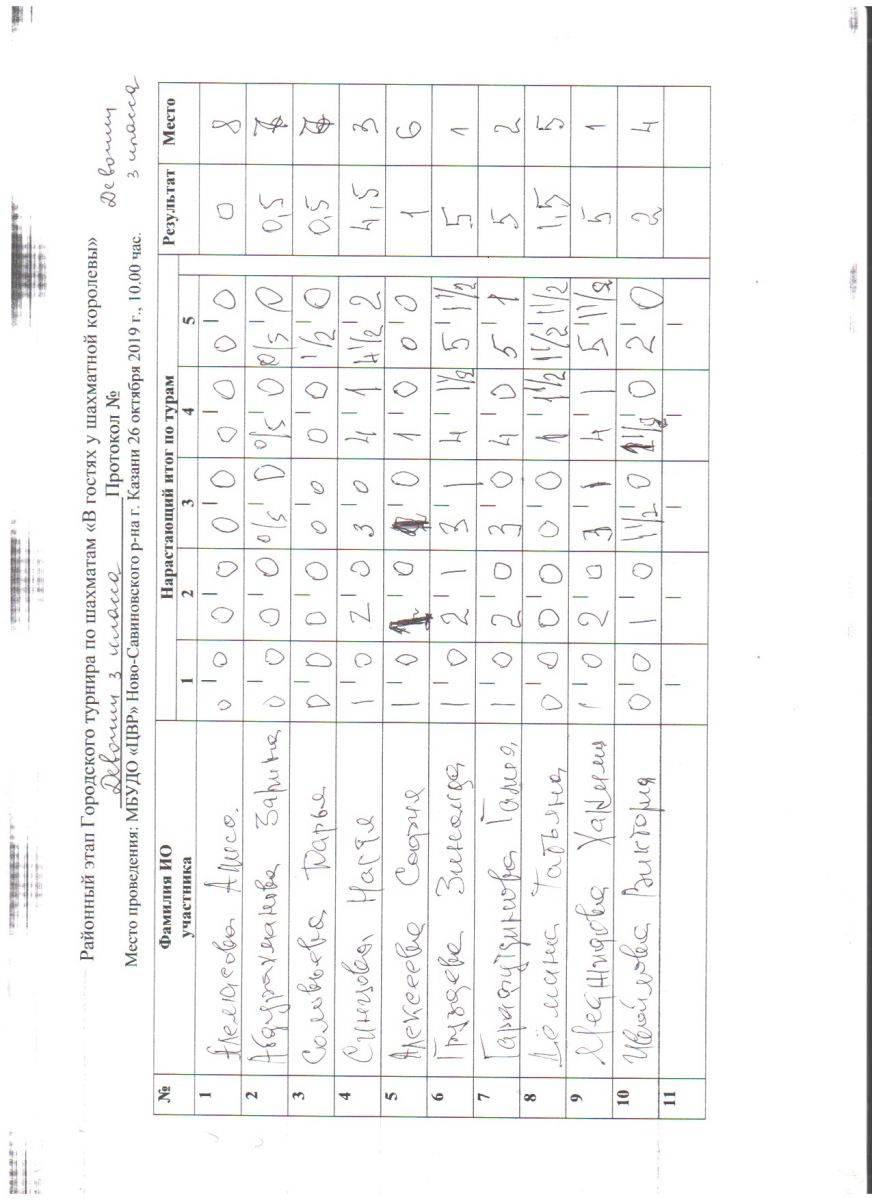 Районный этап Городского турнира по шахматам «В гостях у шахматной королевы»
Девочки 3 класса Протокол № Девочки
Место проведения: МБУДО «ЦВР» Ново-Савиновского р-на г. Казани 26 октября 2019 г., 10.00 час. 3 класса
№ Фамилия ИО участника Нарастающий итог по турам Результат Место
1 2 3 4 5
1 Алиса 0 0 0 0 0 0 0 0 0 0 0 8
2 Абдурахманова Зарина 0 0 0 0 0/5 0 0/5 0 0/5 0 0,5 7
3 Соловьева Дарья 0 0 0 0 0 0 0 0 1/2 0 0,5 7
4 Синцова Настя 1 0 2 0 3 0 4 1 4 1/2 2 4,5 3
5 Алексеева София 1 0 1 0 0 1 0 0 0 1 6
6 Груздева Зинаида 1 0 2 1 3 1 4 1 1/2 5 1 1/2 5 1
7 1 0 2 0 3 0 4 0 5 1 5 2
8 Дёмина Татьяна 0 0 0 0 0 0 1 1 1/2 1 1/2 1 1/2 1,5 5
9 1 0 2 0 3 1 4 1 5 1 1/2 5 1
10 Виктория 0 0 1 0 1 1/2 0 0 2 0 2 4
11